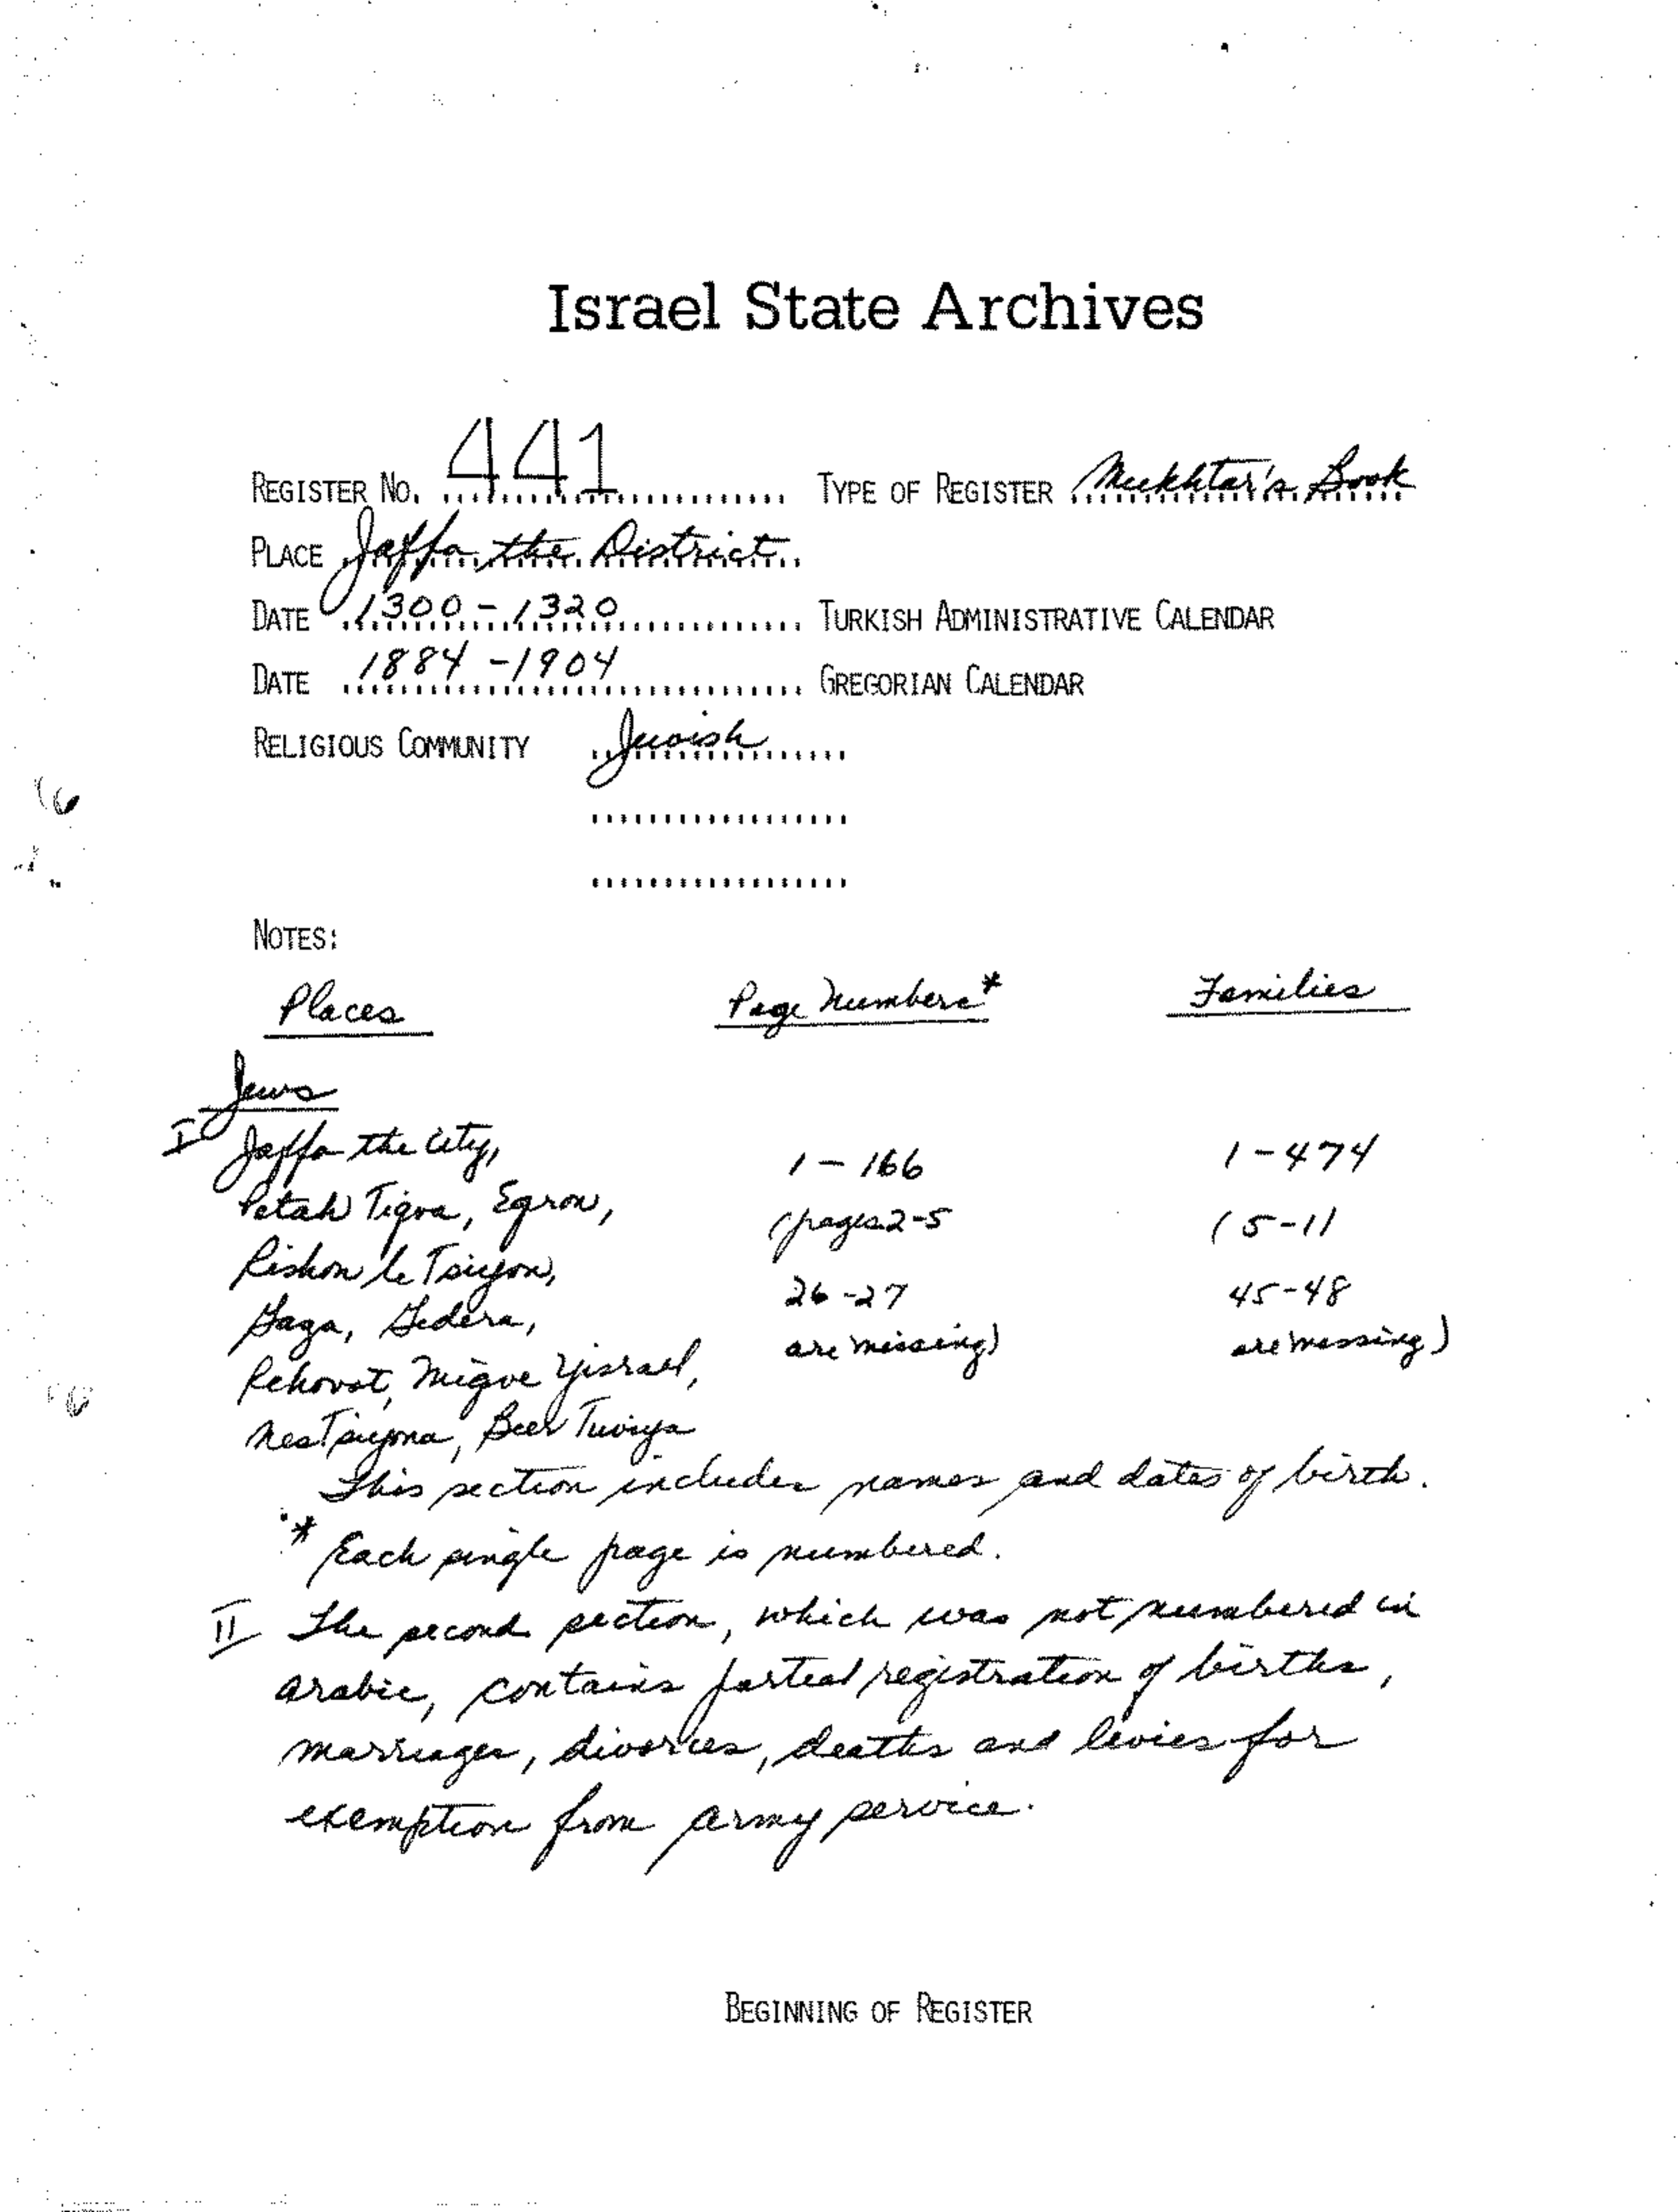 Israel State Archives
REGISTER NO. 441 TYPE OF REGISTER Mukhtar's Book
PLACE Jaffa the District
DATE 1300-1320 TURKISH ADMINISTRATIVE CALENDAR
DATE 1884-1904 GREGORIAN CALENDAR
RELIGIOUS COMMUNITY Jewish
NOTES:
Places Page Numbers* Families
Jews
I Jaffa the City, 1-166 1-474
Petah Tiqva, Eqron, (pages 2-5 (5-11
Rishon le Tsiyon, 26-27 45-48
Gaza, Gedera, are missing) are missing)
Rehovot, Miqve Yisrael,
Nes Tsiyona, Beer Tuviya
This section includes names and dates of birth.
* Each single page is numbered.
II The second section, which was not numbered in
Arabic, contains partial registration of births,
marriages, divorces, deaths and levies for
exemption from army service.
BEGINNING OF REGISTER